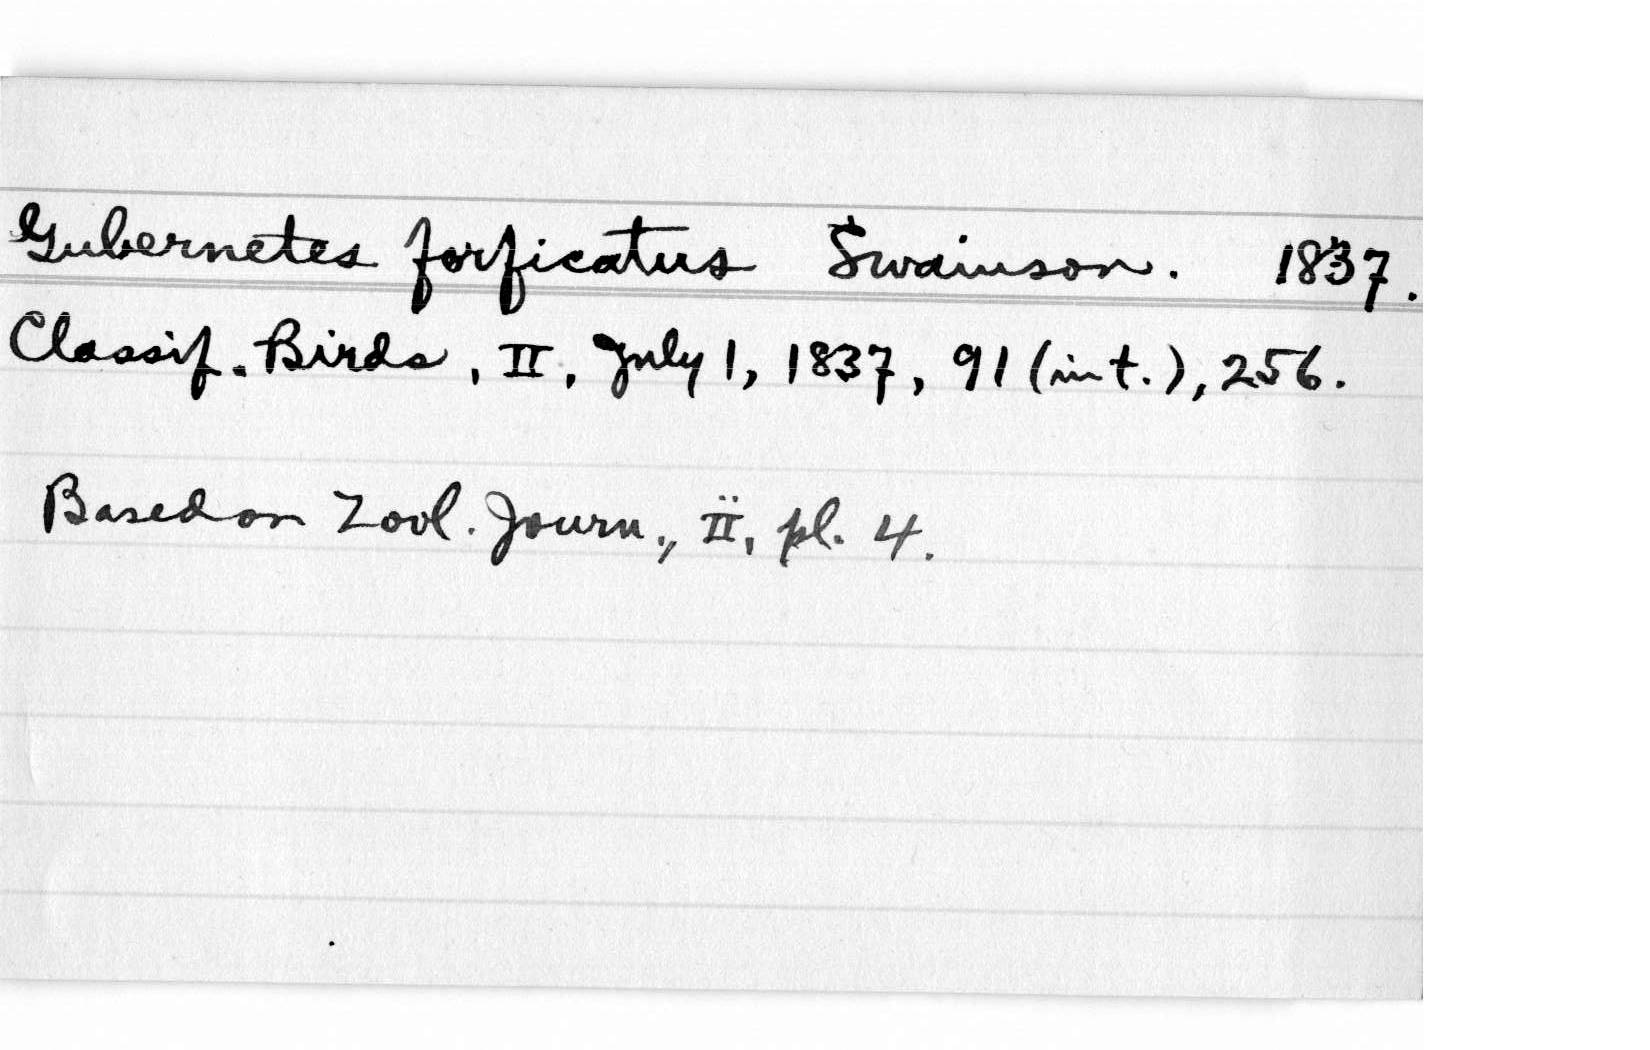 Gubernetes forficatus Swainson. 1837.
Classif. Birds, II, July 1, 1837, 91 (int.), 256.
Based on Zool. Journ., II, pl. 4.